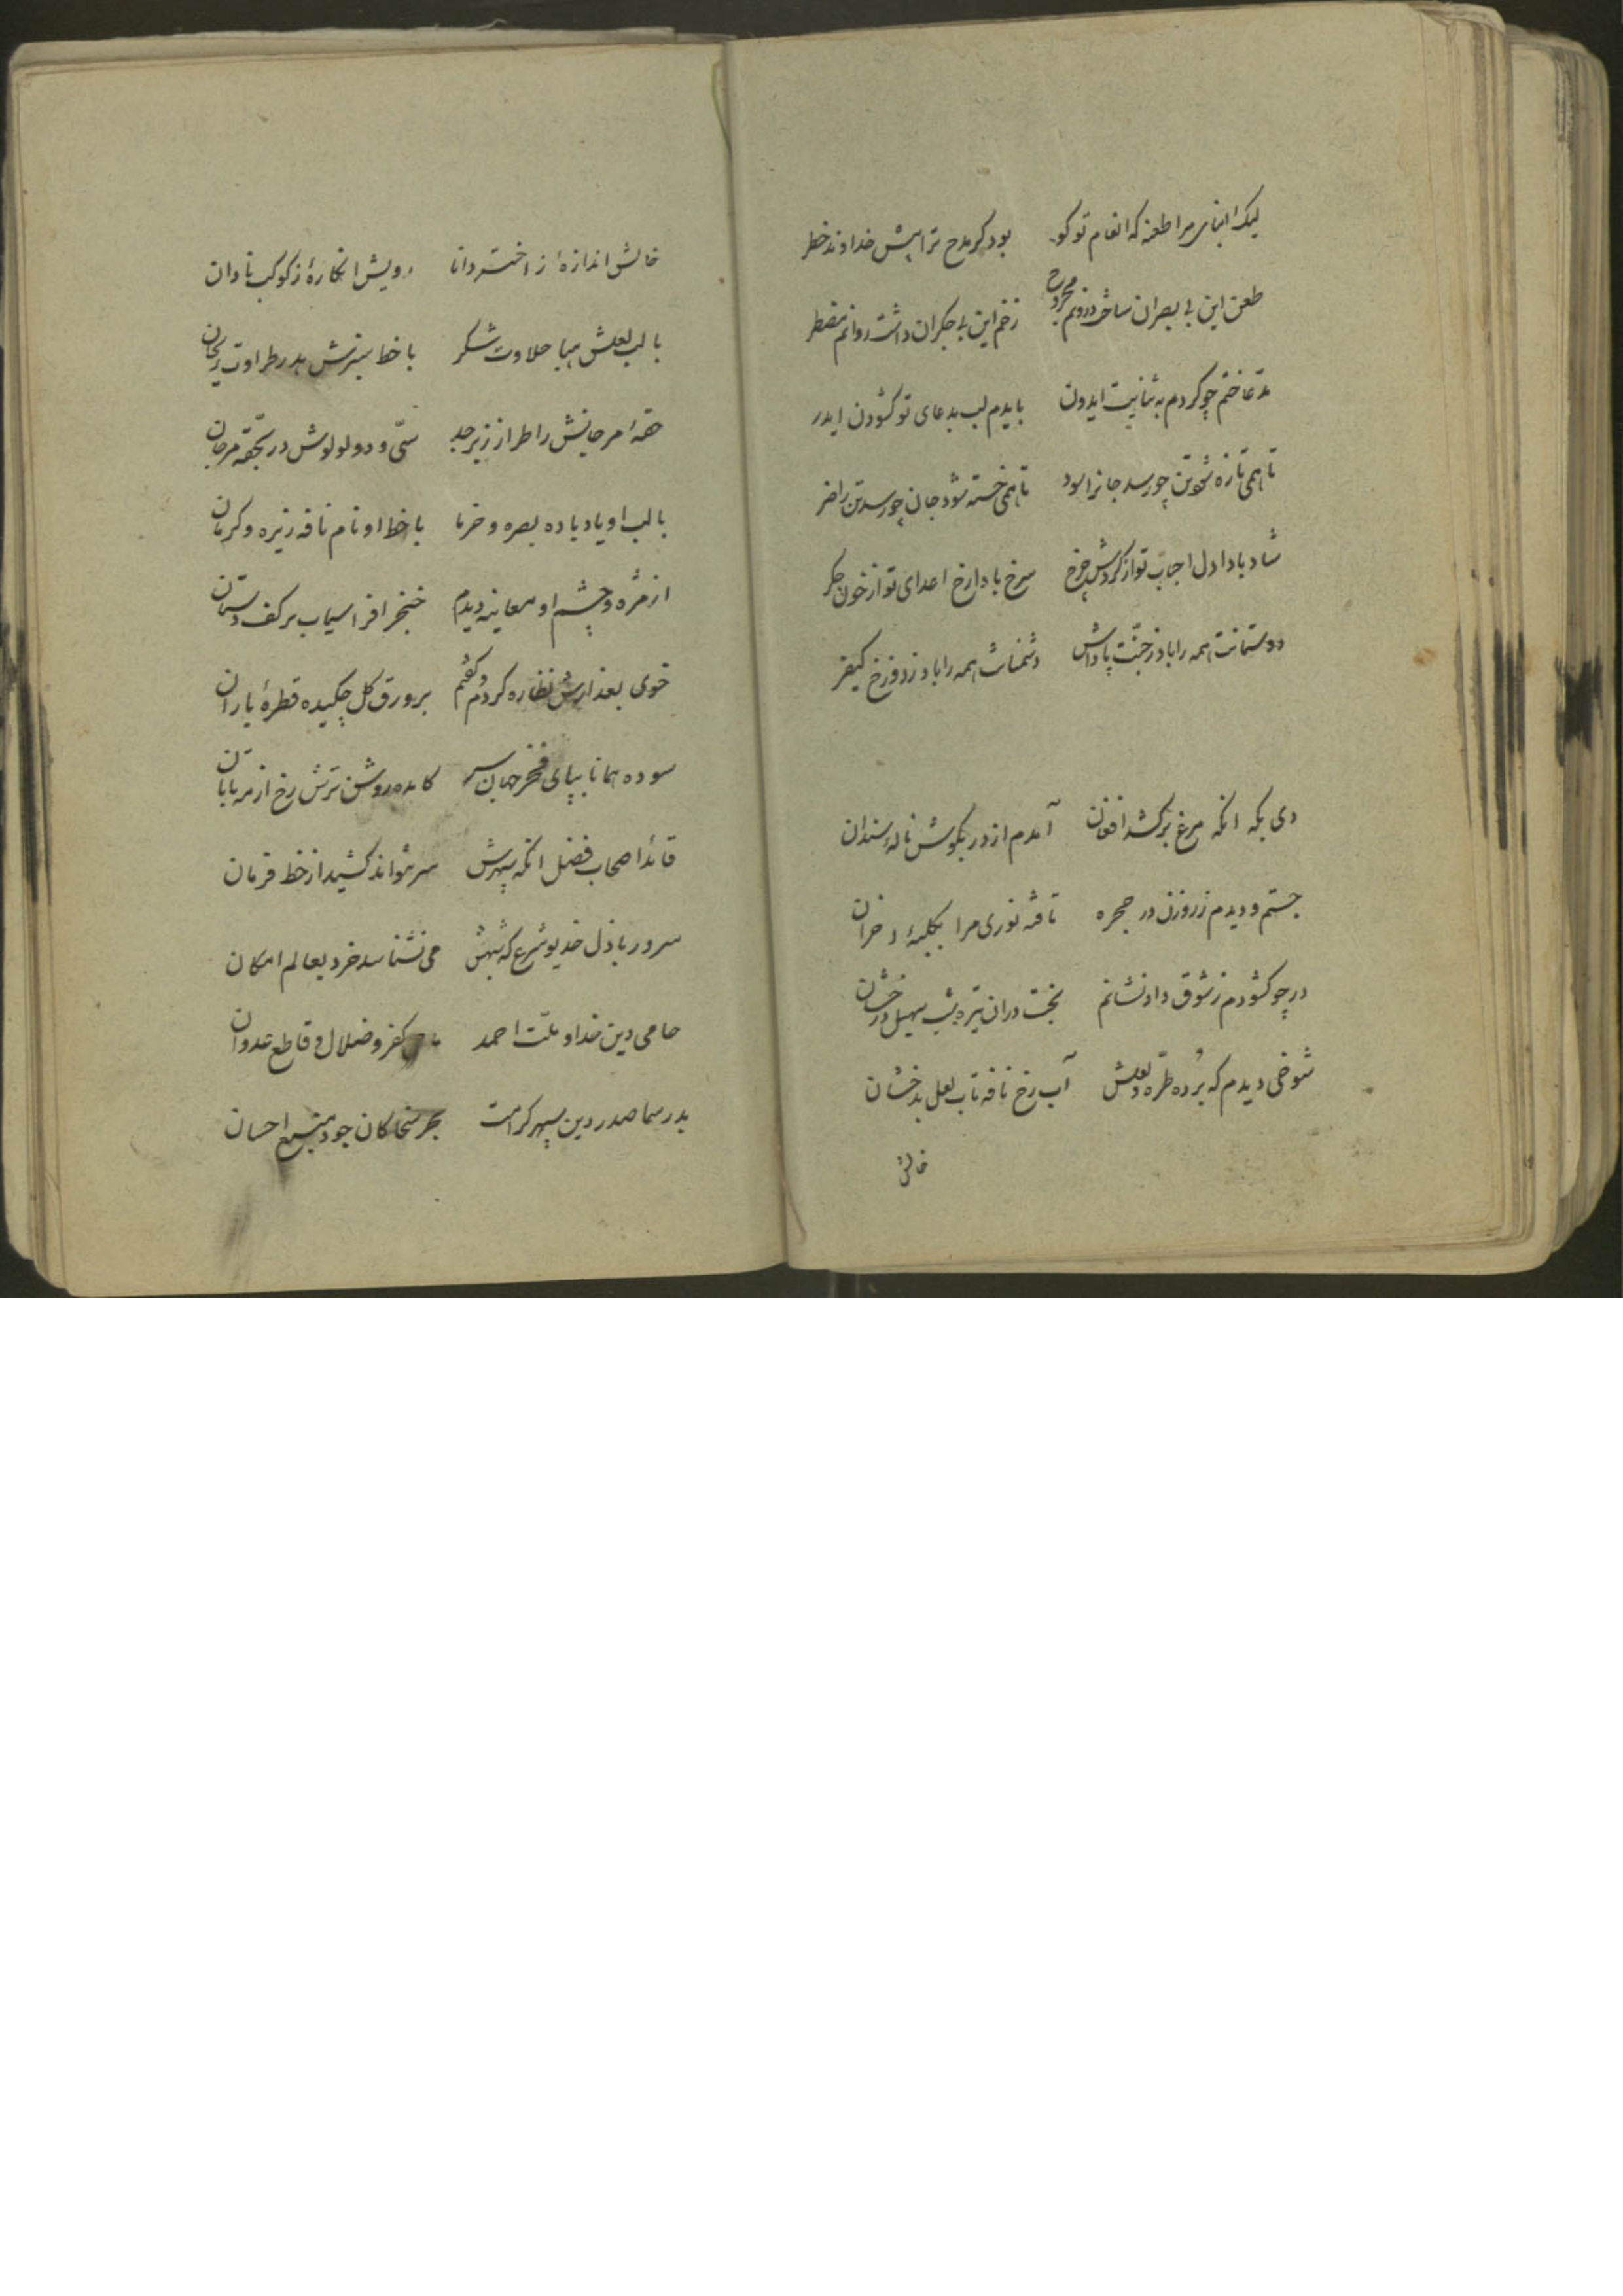 لیک ابنای مرا طعنه که انعام تو کو بود کر مدح ترا پیش خداوند خطر
طعن این بی بصران ساخت درونم مجروح زخم این بی جکران داشت روانم مضطر
مدعا ختم چو کردم به ثنایت ایدون بایدم لب بدعای تو کشودن ایدر
تا همی تازه شود تن چو رسد جانرا سود تا همی خسته شود جان چو رسد تن را ضر
شاد بادا دل احباب تو از کردش چرخ سرخ بادا رخ اعدای تو از خون جکر
دوستانت همه را باد ز جنّت پاداش دشمنانت همه را باد ز دوزخ کیفر
دی بکه انکه مرغ برکشد افغان آمدم از در بکوش ناله سندان
جستم و دیدم ز روزن در حجره تافته نوری مرا بکلبهٔ احزان
در چو کشودم ز شوق داد نشانم بخت دران تیره شب سهیل درخشان
شوخی دیدم که بُرده طرّه و لعلش آب رخ نافه تاب لعل بدخشان
خالش
خالش اندازهٔ ز اختر دانا رویش انکارهٔ ز کوکب نادان
با لب لعلش هبا حلاوت شکر با خط سبزش هدر طراوت ریحان
حقهٔ مرجانش را طراز زبرجد سیّ و دو لولوش در بحقّه مرجان
با لب او یاد باده بصره و خرما با خط او نام نافه زیره و کرمان
از مژه و چشم او معاینه دیدم خنجر افراسیاب بر کف دستان
خوی بعذارش نظاره کردم و کفتم بر ورق کل چکیده قطرهٔ باران
سوده همانا بپای فخر جهان سر کامده روشن ترش رخ از مه تابان
قائد اصحاب فضل انکه سپهرش سر نتواند کشید از خط فرمان
سرور باذل خدیو شرع که شبهش می نشناسد خرد بعالم امکان
حامی دین خدا و ملّت احمد ماحی کفر و ضلال و قاطع عدوان
بدر سما صدر دین سپهر کرامت بحر سخا کان جود منبع احسان